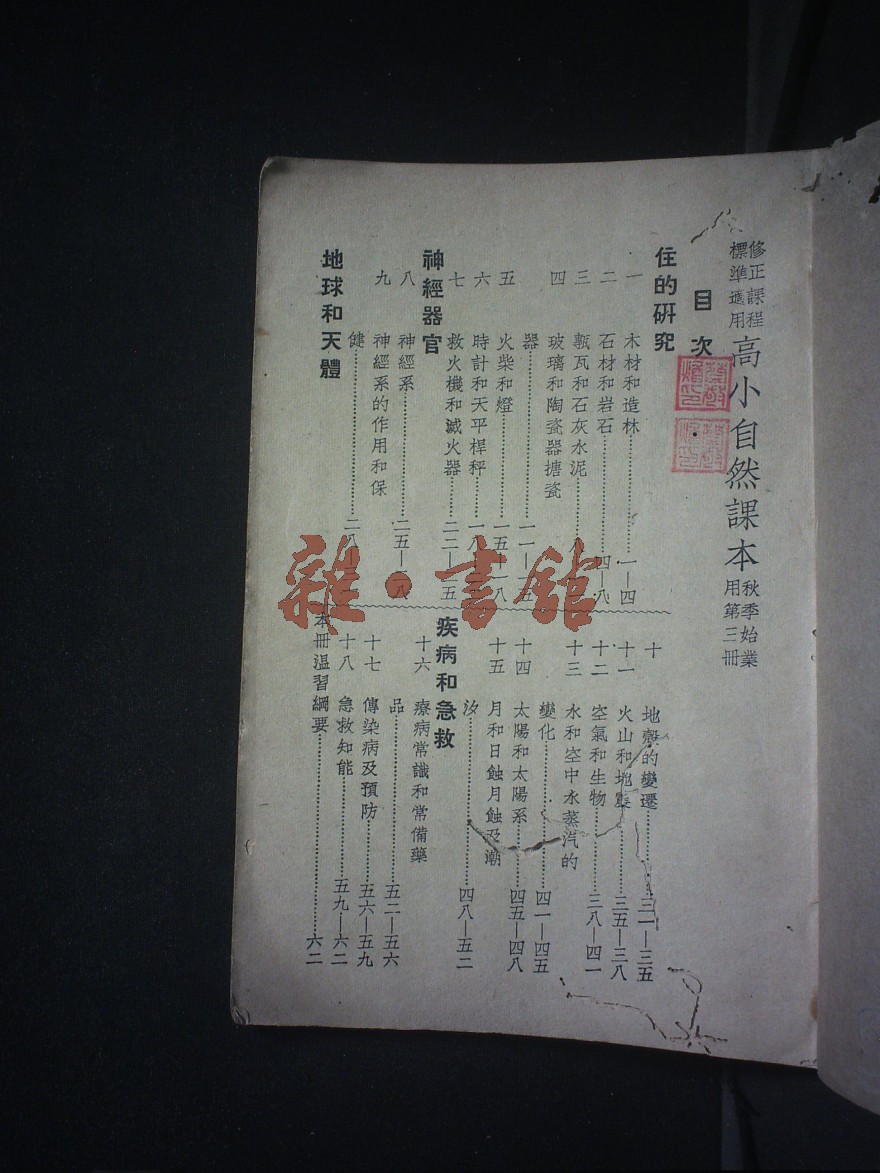 修正課程
標準適用
高小自然課本
秋季始業
用第三冊
目次
住的研究
一 木材和造林……一—四
二 石材和岩石……四—八
三 甎瓦和石灰水泥……八
四 玻璃和陶瓷器搪瓷
器……一一—
五 火柴和燈……一五—一八
六 時計和天平桿秤……一八
神經器官
七 救火機和滅火器……二二—二五
八 神經系……二五—二八
九 神經系的作用和保
健……二八—
地球和天體
十 地殼的變遷……三一—三五
十一 火山和地震……三五—三八
十二 空氣和生物……三八—四一
十三 水和空中水蒸汽的
變化……四一—四五
十四 太陽和太陽系……四五—四八
十五 月和日蝕月蝕及潮
汐……四八—五二
疾病和急救
十六 療病常識和常備藥
品……五二—五六
十七 傳染病及預防……五六—五九
十八 急救知能……五九—六二
本冊温習綱要……六二
雜·書館